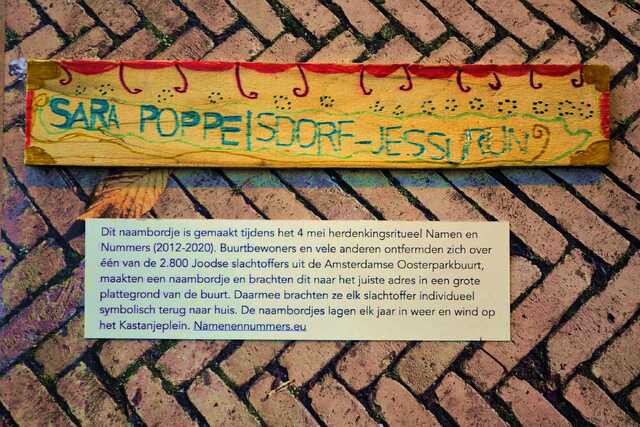 SARA POPPEISDORF-JESSURUN
Dit naambordje is gemaakt tijdens het 4 mei herdenkingsritueel Namen en
Nummers (2012-2020). Buurtbewoners en vele anderen ontfermden zich over
één van de 2.800 Joodse slachtoffers uit de Amsterdamse Oosterparkbuurt,
maakten een naambordje en brachten dit naar het juiste adres in een grote
plattegrond van de buurt. Daarmee brachten ze elk slachtoffer individueel
symbolisch terug naar huis. De naambordjes lagen elk jaar in weer en wind op
het Kastanjeplein. Namenennummers.eu